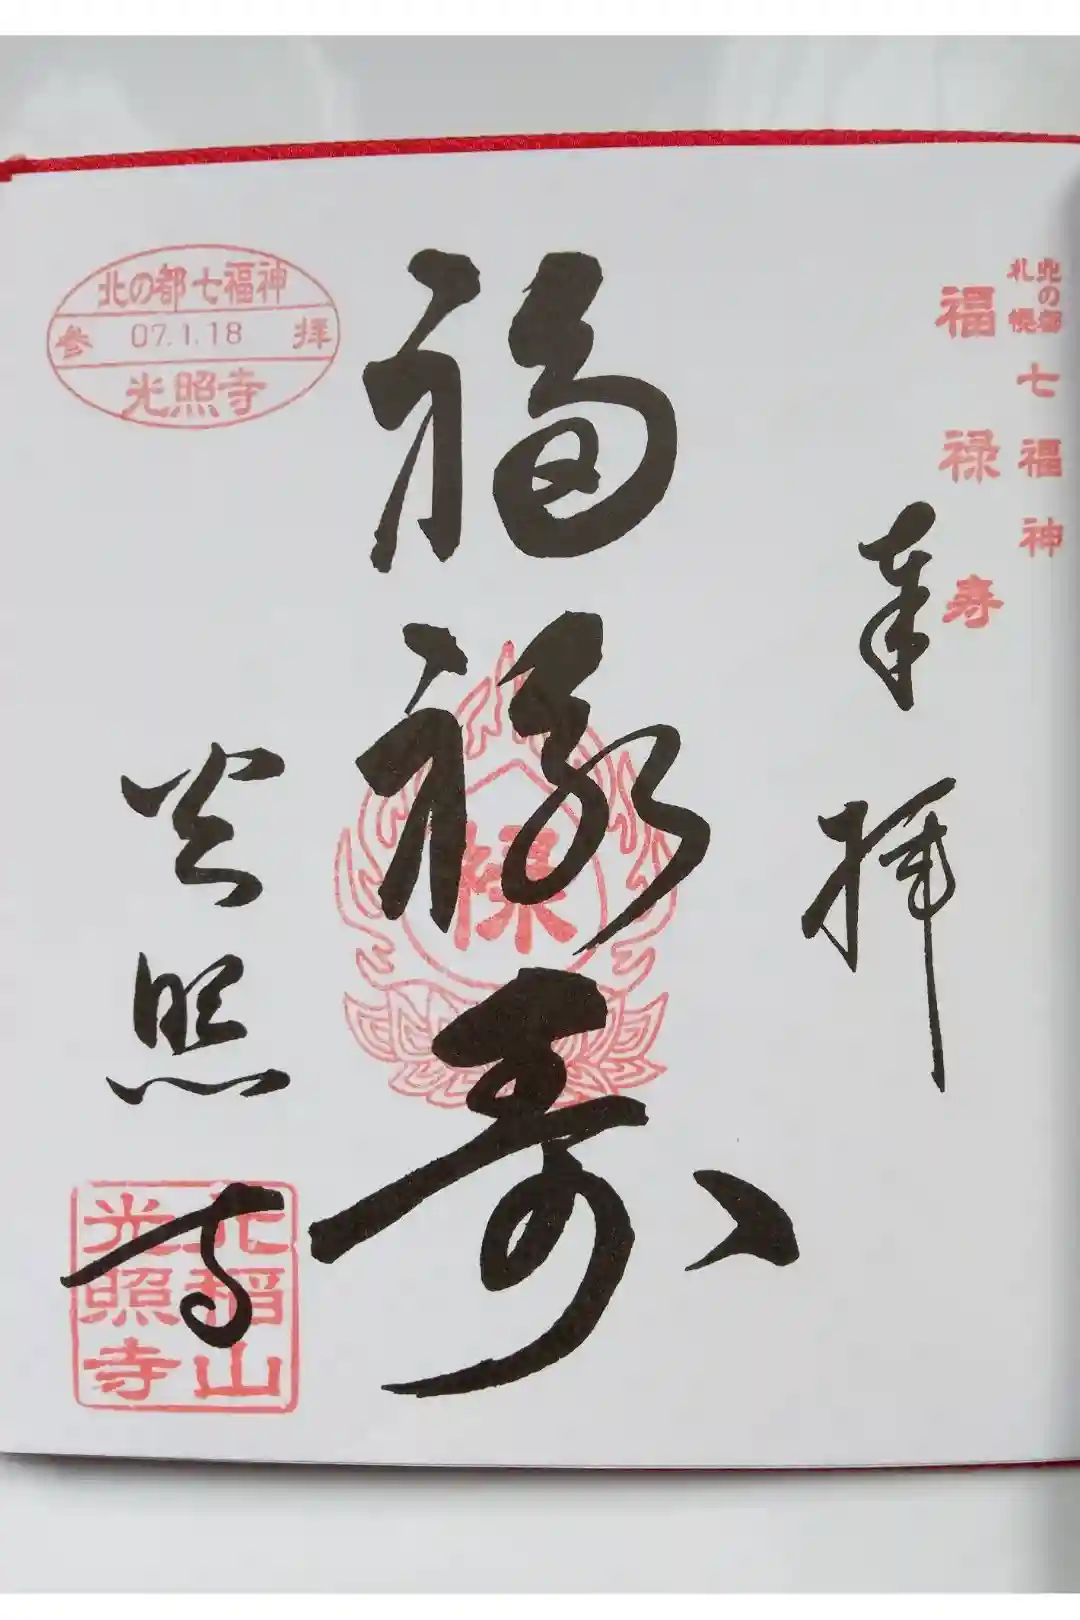 北の都
札幌
七福神
福禄寿
奉拝
福禄寿
禄
北の都七福神
参 07.1.18 拝
光照寺
光照寺
稲山
光照寺